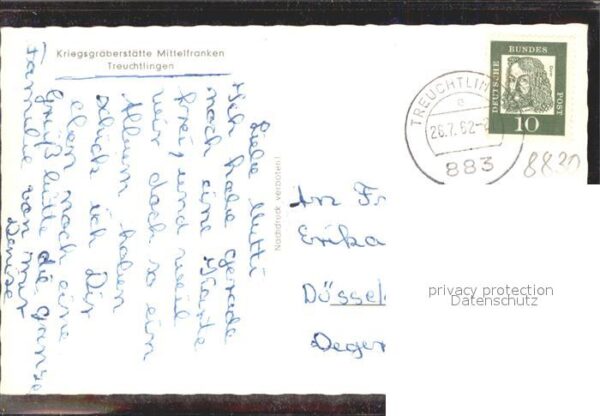 Kriegsgräberstätte Mittelfranken
Treuchtlingen
Liebe Mutti
Ich habe gerade
noch eine Karte
frei, und weil
wir doch so ein
Album haben
schick ich Dir
eben noch eine
Grüß bitte die ganze
Familie von mir
Nachdruck verboten!
TREUCHTLIN
a
26.7.62
883
DEUTSCHE
BUNDES
POST
Dürer
10
8830
An Fr
Erika
Düssel
Deger
privacy protection
Datenschutz